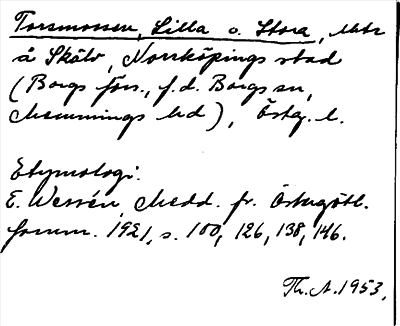 Torsmossen, Lilla o. Stora, mtr
å Skälv, Norrköpings stad
(Borgs förs., f.d. Borgs sn,
Memmings hd), Östg. l.
Etymologi:
E. Wessén, Medd. fr. Östergötl.
fornm. 1921, s. 100, 126, 138, 146.
Th. A. 1953.